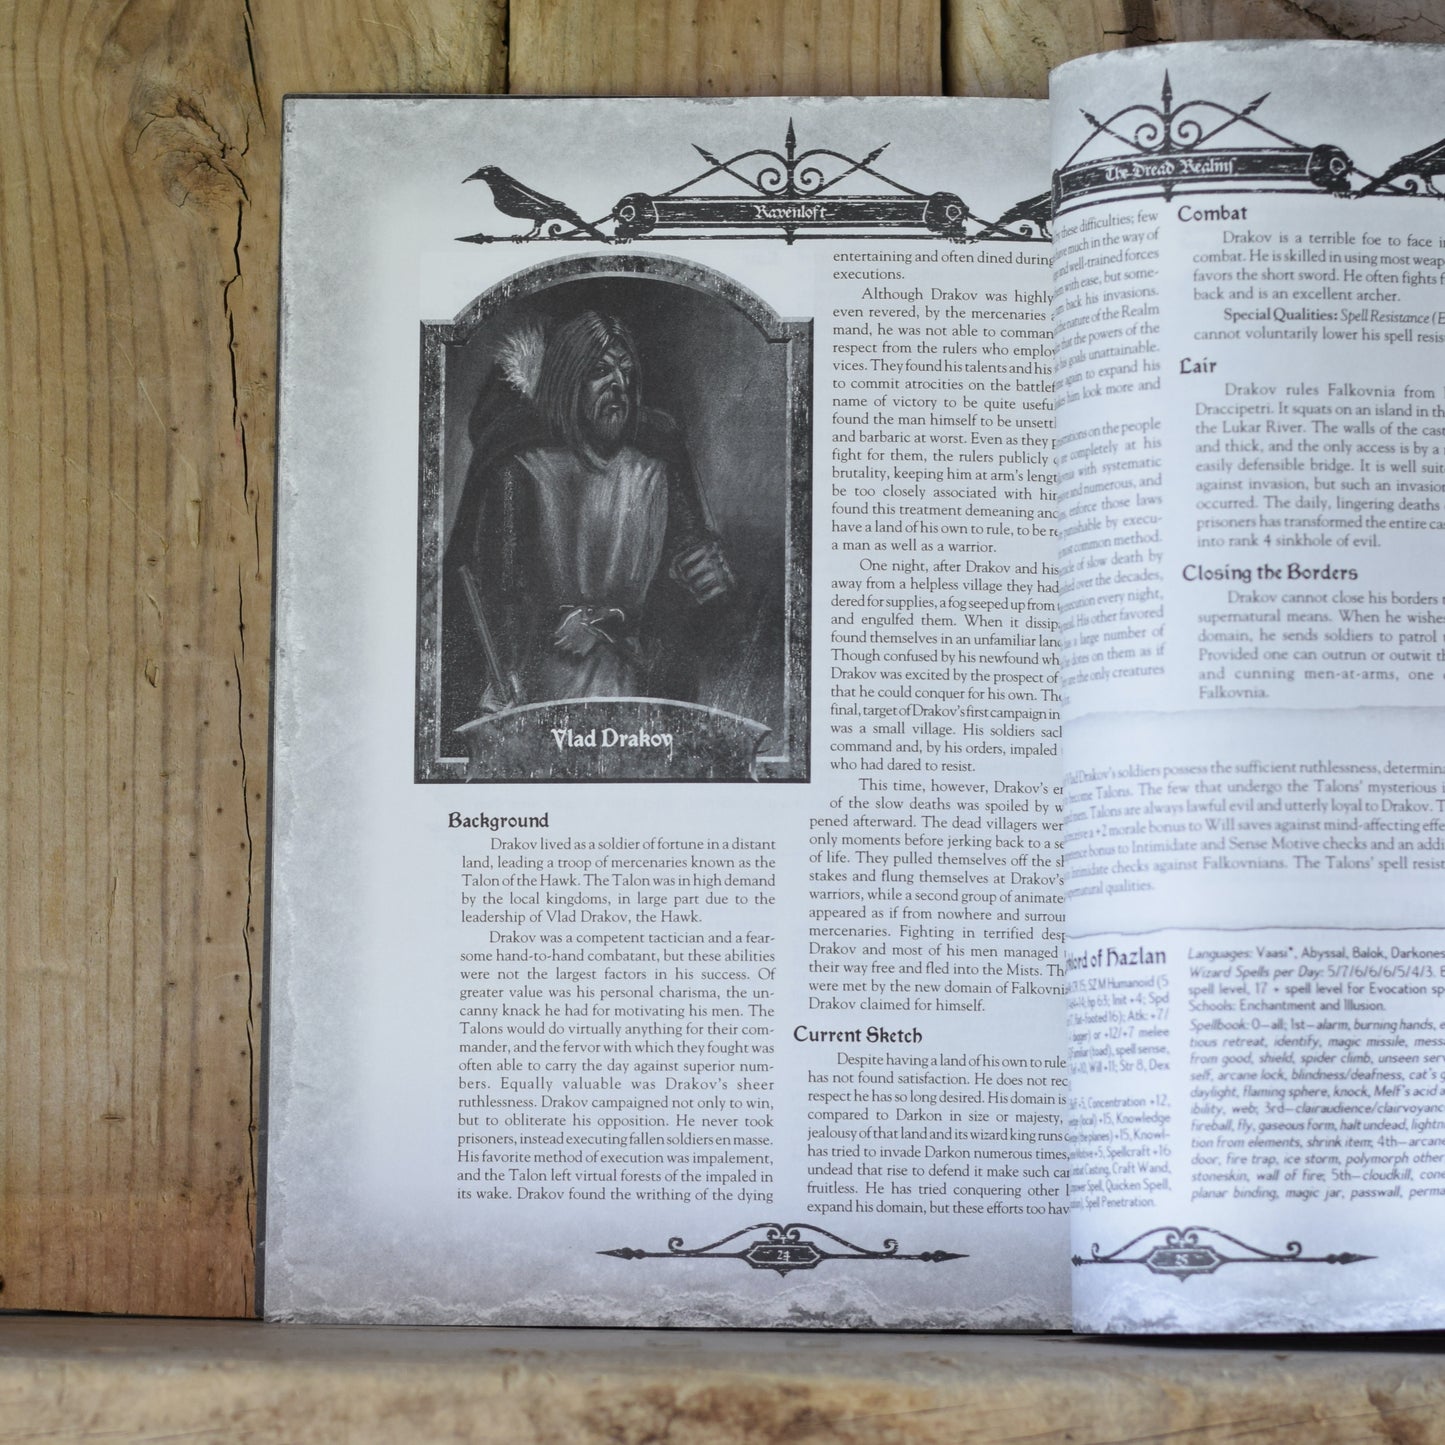 Ravenloft
Vlad Drakov
Background
Drakov lived as a soldier of fortune in a distant
land, leading a troop of mercenaries known as the
Talon of the Hawk. The Talon was in high demand
by the local kingdoms, in large part due to the
leadership of Vlad Drakov, the Hawk.
Drakov was a competent tactician and a fear-
some hand-to-hand combatant, but these abilities
were not the largest factors in his success. Of
greater value was his personal charisma, the un-
canny knack he had for motivating his men. The
Talons would do virtually anything for their com-
mander, and the fervor with which they fought was
often able to carry the day against superior num-
bers. Equally valuable was Drakov's sheer
ruthlessness. Drakov campaigned not only to win,
but to obliterate his opposition. He never took
prisoners, instead executing fallen soldiers en masse.
His favorite method of execution was impalement,
and the Talon left virtual forests of the impaled in
its wake. Drakov found the writhing of the dying
entertaining and often dined during
executions.
Although Drakov was highly
even revered, by the mercenaries
mand, he was not able to comman
respect from the rulers who emplo
vices. They found his talents and his
to commit atrocities on the battlef
name of victory to be quite usefu
found the man himself to be unsettl
and barbaric at worst. Even as they
fight for them, the rulers publicly
brutality, keeping him at arm's lengt
be too closely associated with hi
found this treatment demeaning and
have a land of his own to rule, to be re
a man as well as a warrior.
One night, after Drakov and his
away from a helpless village they had
dered for supplies, a fog seeped up from
and engulfed them. When it dissip
found themselves in an unfamiliar land
Though confused by his newfound wh
Drakov was excited by the prospect of
that he could conquer for his own. The
final, target of Drakov's first campaign in
was a small village. His soldiers sac
command and, by his orders, impaled
who had dared to resist.
This time, however, Drakov's en
of the slow deaths was spoiled by w
pened afterward. The dead villagers wer
only moments before jerking back to a se
of life. They pulled themselves off the s
stakes and flung themselves at Drakov's
warriors, while a second group of animate
appeared as if from nowhere and surrou
mercenaries. Fighting in terrified desp
Drakov and most of his men managed
their way free and fled into the Mists. Th
were met by the new domain of Falkovni
Drakov claimed for himself.
Current Sketch
Despite having a land of his own to rule
has not found satisfaction. He does not rec
respect he has so long desired. His domain is
compared to Darkon in size or majesty,
jealousy of that land and its wizard king runs
has tried to invade Darkon numerous times,
undead that rise to defend it make such ca
fruitless. He has tried conquering other
expand his domain, but these efforts too hav
24
The Dread Realms
these difficulties; few
have much in the way of
and well-trained forces
with ease, but some-
back his invasions.
the nature of the Realm
that the powers of the
his goals unattainable.
again to expand his
him look more and
on the people
completely at his
with systematic
and numerous, and
enforce those laws
punishable by execu-
most common method.
of slow death by
over the decades,
execution every night,
His other favored
a large number of
he dotes on them as if
are the only creatures
Combat
Drakov is a terrible foe to face in
combat. He is skilled in using most weap
favors the short sword. He often fights f
back and is an excellent archer.
Special Qualities: Spell Resistance (E
cannot voluntarily lower his spell resis
Lair
Drakov rules Falkovnia from
Draccipetri. It squats on an island in th
the Lukar River. The walls of the cas
and thick, and the only access is by a
easily defensible bridge. It is well suit
against invasion, but such an invasion
occurred. The daily, lingering deaths
prisoners has transformed the entire ca
into rank 4 sinkhole of evil.
Closing the Borders
Drakov cannot close his borders
supernatural means. When he wishe
domain, he sends soldiers to patrol
Provided one can outrun or outwit th
and cunning men-at-arms, one
Falkovnia.
Vlad Drakov's soldiers possess the sufficient ruthlessness, determina
become Talons. The few that undergo the Talons' mysterious
men. Talons are always lawful evil and utterly loyal to Drakov. T
receive a +2 morale bonus to Will saves against mind-affecting effe
bonus to Intimidate and Sense Motive checks and an addi
Intimidate checks against Falkovnians. The Talons' spell resist
supernatural qualities.
lord of Hazlan
CR 15; SZ M Humanoid (5
hp 63; Init +4; Spd
flat-footed 16); Atk: +7/
or +12/+7 melee
familiar (toad), spell sense,
Will +11; Str 8, Dex
+5, Concentration +12,
(local) +15, Knowledge
(the planes) +15, Knowl-
+5, Spellcraft +16
Casting, Craft Wand,
Spell, Quicken Spell,
Spell Penetration.
Languages: Vaasi*, Abyssal, Balok, Darkones
Wizard Spells per Day: 5/7/6/6/6/5/4/3.
spell level, 17 + spell level for Evocation sp
Schools: Enchantment and Illusion.
Spellbook: 0—all; 1st—alarm, burning hands, e
tious retreat, identify, magic missile, mess
from good, shield, spider climb, unseen serv
self, arcane lock, blindness/deafness, cat's g
daylight, flaming sphere, knock, Melf's acid a
ibility, web; 3rd—clairaudience/clairvoyanc
fireball, fly, gaseous form, halt undead, lightn
tion from elements, shrink item; 4th—arcane
door, fire trap, ice storm, polymorph other
stoneskin, wall of fire; 5th—cloudkill, con
planar binding, magic jar, passwall, perma
25